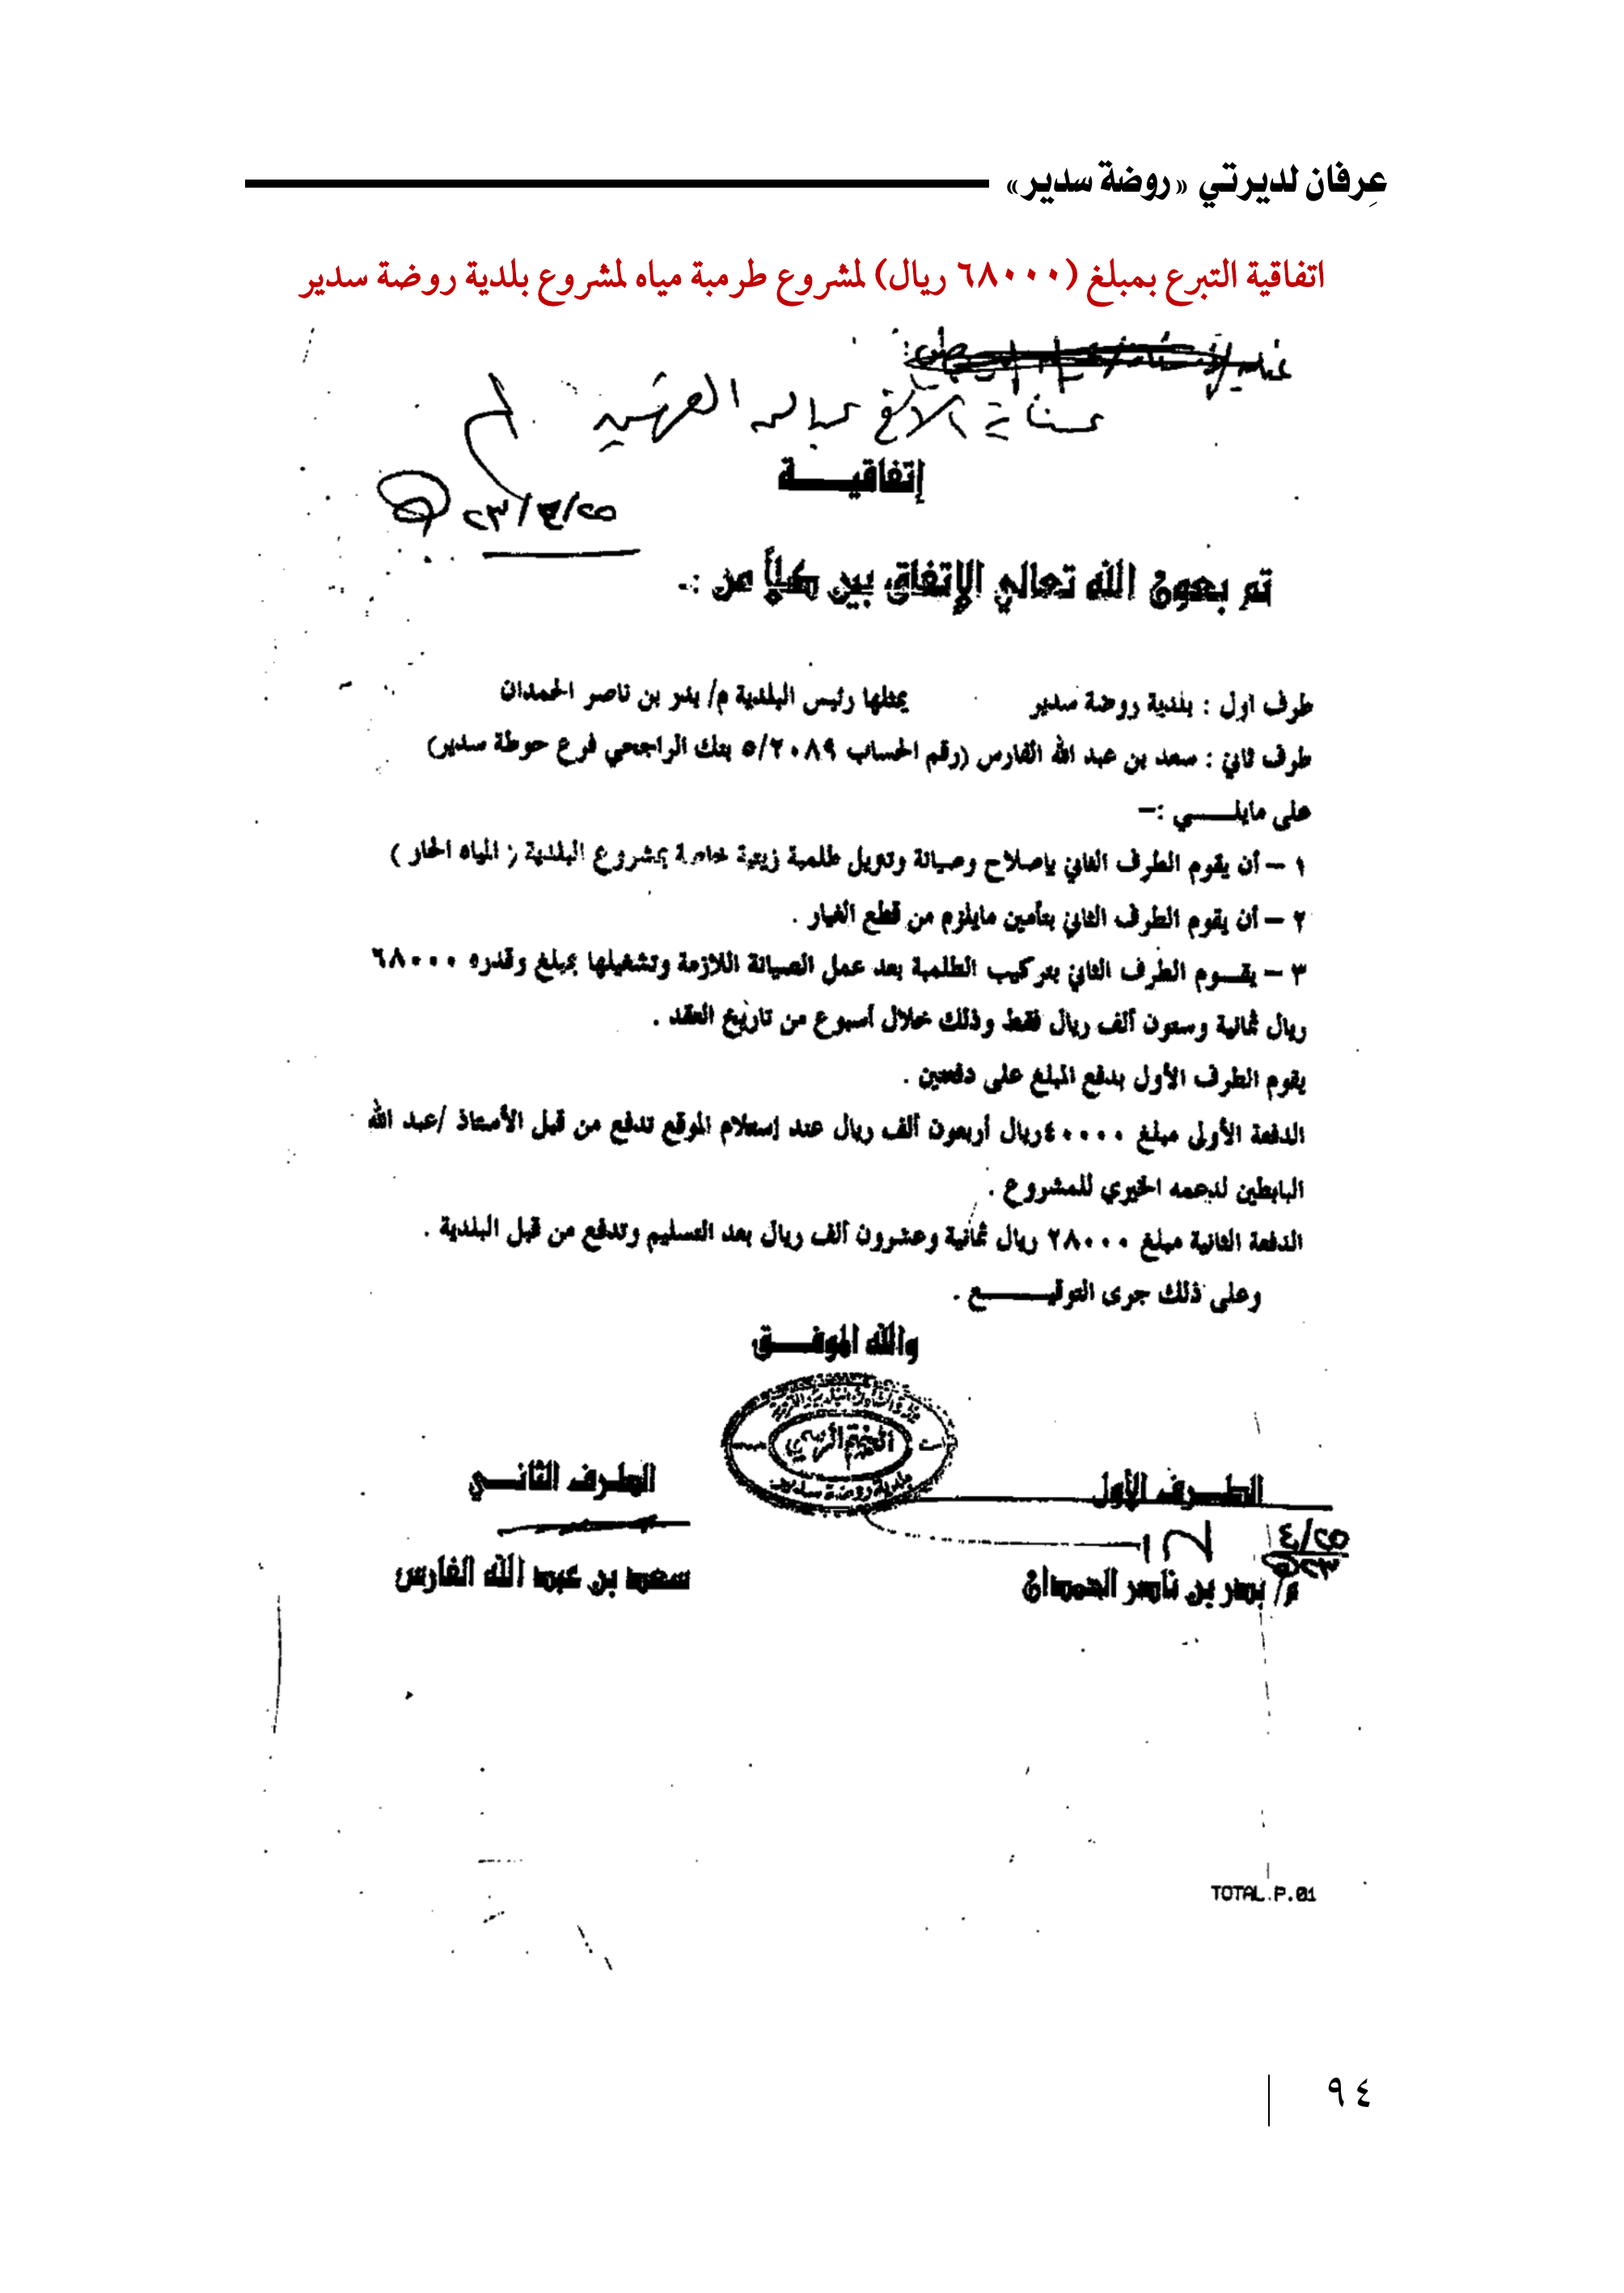 عِرفان لديرتي «روضة سدير»
اتفاقية التبرع بمبلغ (٦٨٠٠٠ ريال) لمشروع طرمبة مياه لمشروع بلدية روضة سدير
عناية الأخ عبدالله
٢٣/٤/٢٥
إتفاقيـــة
تم بعون الله تعالي الإتفاق بين كلاً من :-
طرف اول : بلدية روضة سدير يمثلها رئيس البلدية م/ بدر بن ناصر الحمدان
طرف ثاني : سعد بن عبد الله الفارس (رقم الحساب ٥/٢٠٨٩ بنك الراجحي فرع حوطة سدير)
على مايلـــي :-
١ – أن يقوم الطرف الثاني بإصلاح وصيانة وتنزيل طلمبة زيتية خاصة بمشروع البلدية ( المياه الحار )
٢ – أن يقوم الطرف الثاني بتأمين مايلزم من قطع الغيار .
٣ – يقــوم الطرف الثاني بتركيب الطلمبة بعد عمل الصيانة اللازمة وتشغيلها بمبلغ وقدره ٦٨٠٠٠
ريال ثمانية وستون ألف ريال فقط وذلك خلال أسبوع من تاريخ العقد .
يقوم الطرف الأول بدفع المبلغ على دفعتين .
الدفعة الأولى مبلغ ٤٠٠٠٠ريال أربعون ألف ريال عند إستلام الموقع تدفع من قبل الأستاذ /عبد الله
البابطين لدعمه الخيري للمشروع .
الدفعة الثانية مبلغ ٢٨٠٠٠ ريال ثمانية وعشرون ألف ريال بعد التسليم وتدفع من قبل البلدية .
وعلى ذلك جرى التوقيـــع .
والله الموفـــق
وزارة الشئون البلدية والقروية
الختم الرسمي
بلدية روضة سدير
الطــرف الأول
الطـرف الثانــي
٤/٢٥
٢٣
م/ بدر بن ناصر الحمدان
سعد بن عبد الله الفارس
TOTAL P.01
٩٤